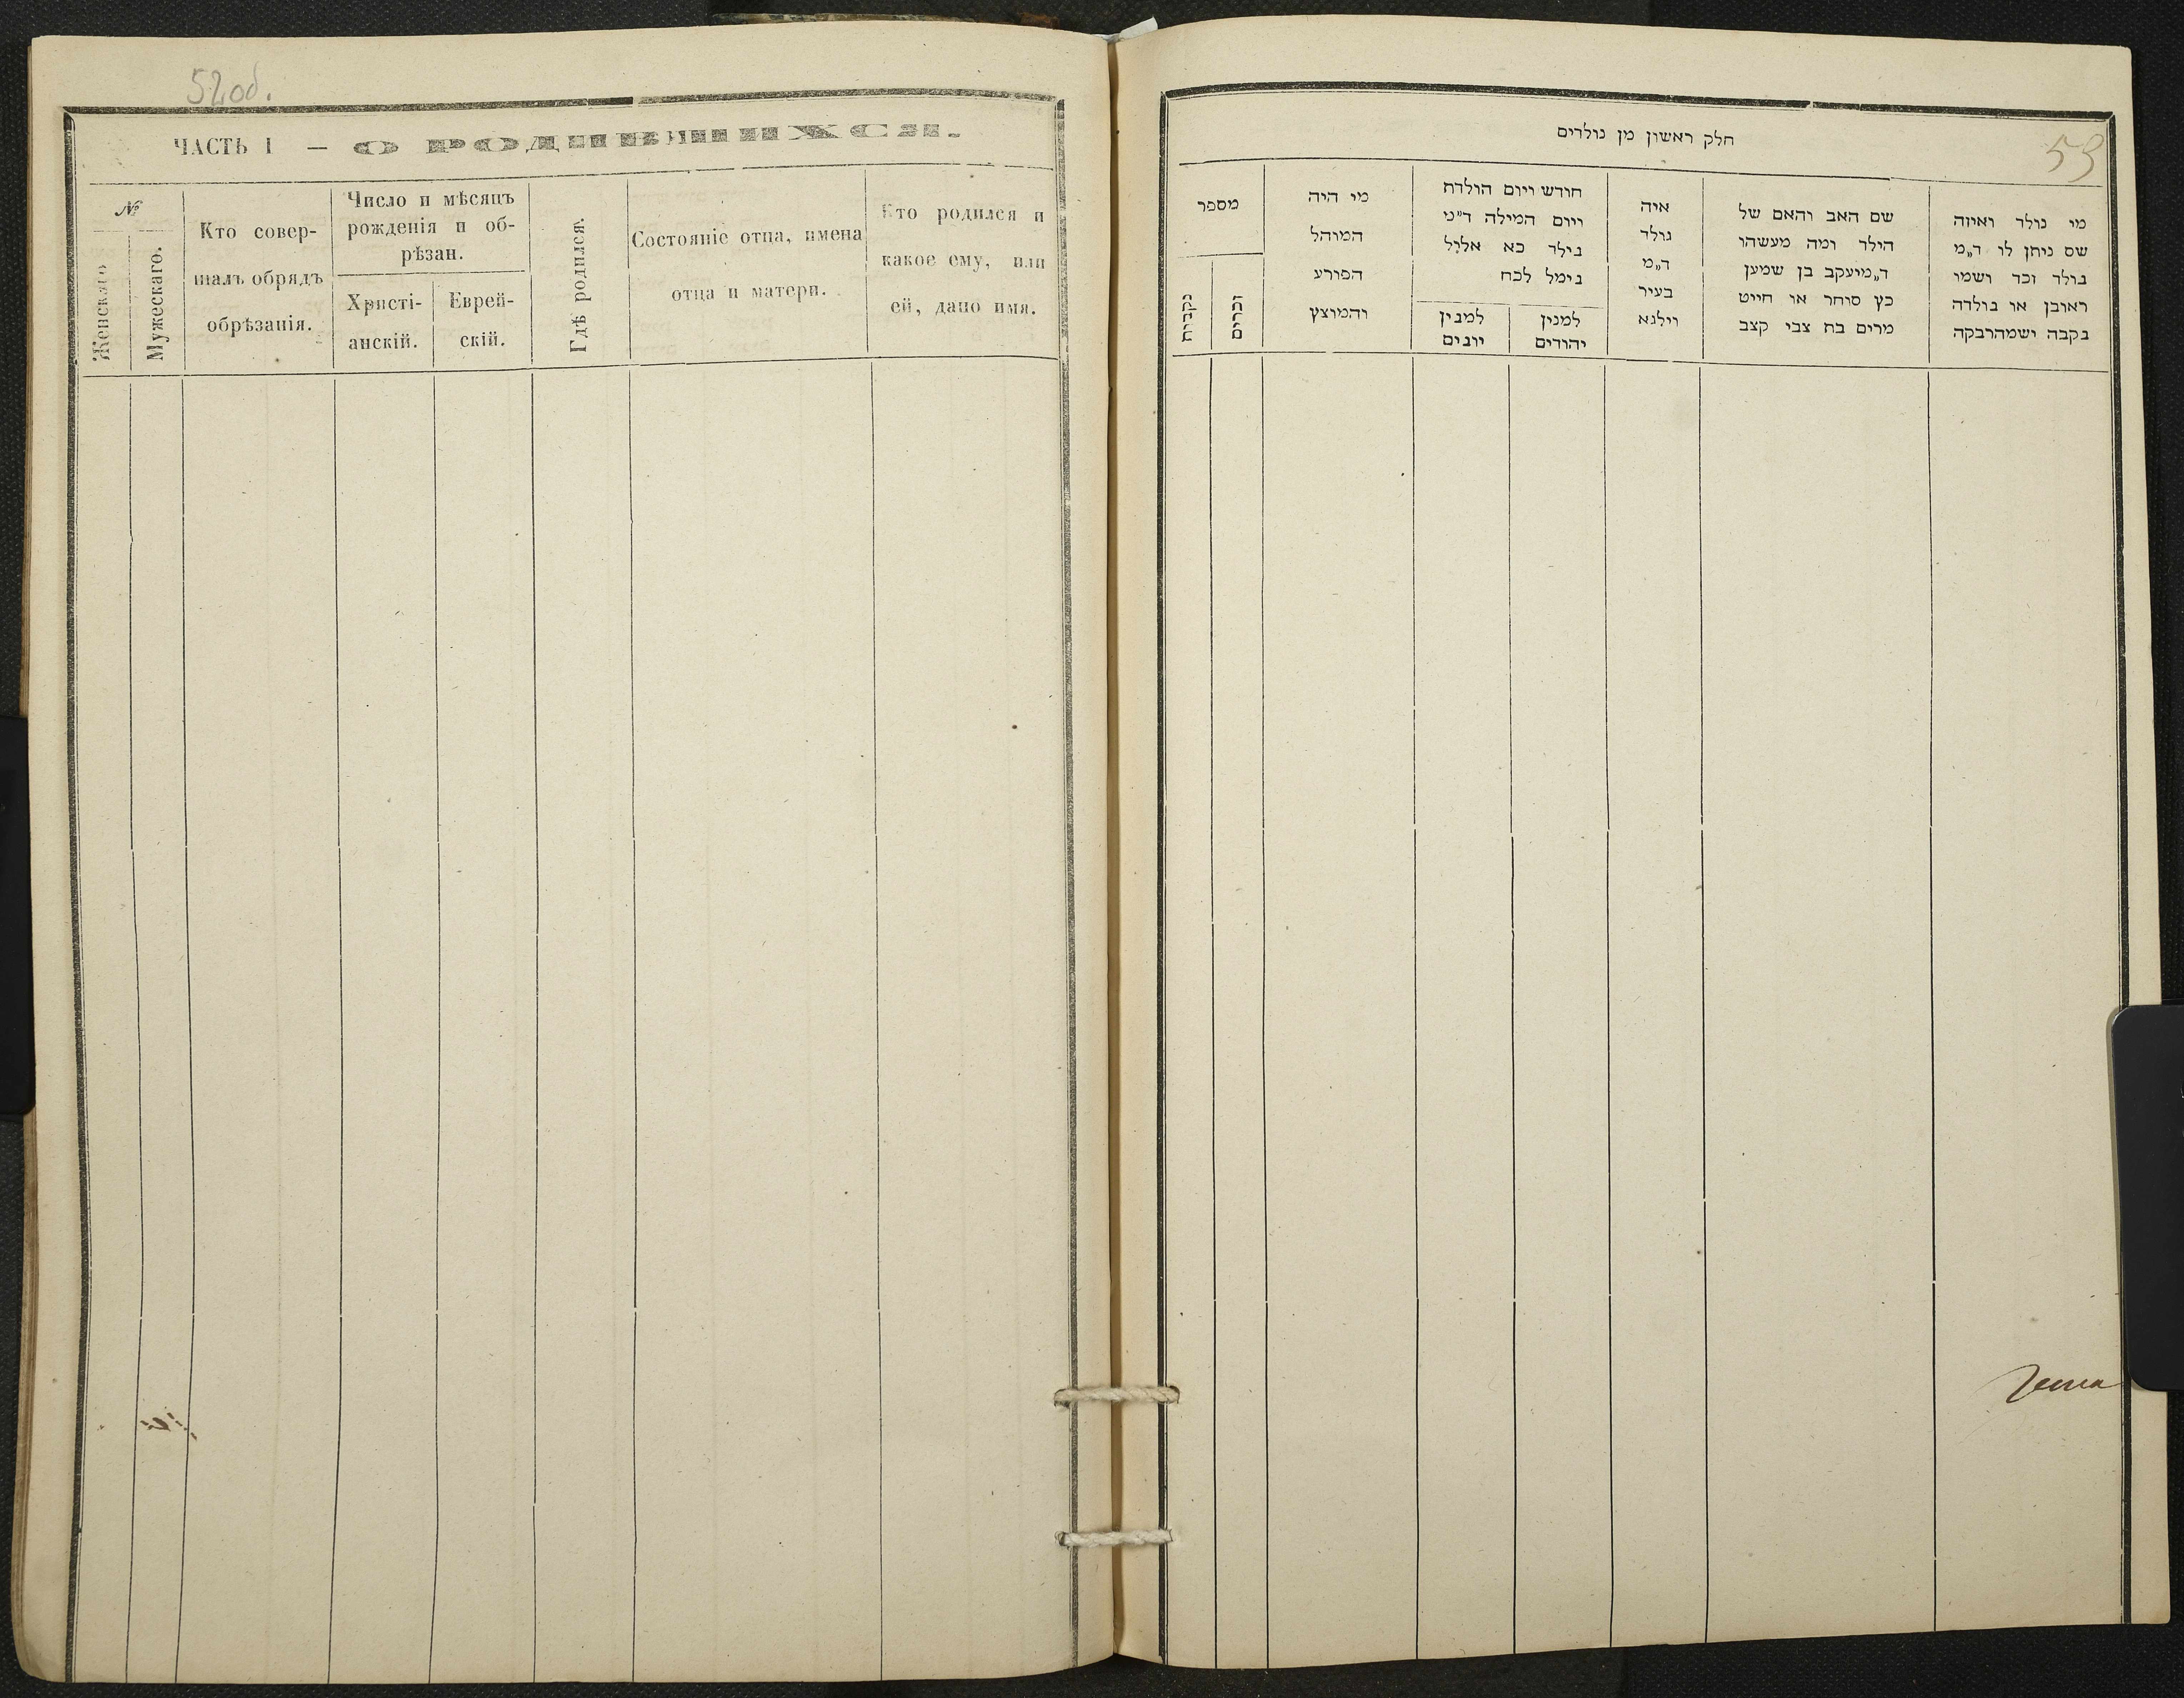 52 об.
ЧАСТЬ I — О РОДИВШИХСЯ.
№
Женскаго
Мужескаго.
Кто совер-
шалъ обрядъ
обрѣзанія.
Число и мѣсяцъ
рожденія и об-
рѣзан.
Христі-
анскій.
Еврей-
скій.
Гдѣ родился.
Состояніе отца, имена
отца и матери.
Кто родился и
какое ему, или
ей, дано имя.
53
חלק ראשון מן נולדים
מי נולד ואיזה
שם ניתן לו ד„מ
נולד זכר ושמו
ראובן או נולדה
נקבה ישמהרבקה
שם האב והאם של
הילד ומה מעשהו
ד„מיעקב בן שמען
כץ סוחר או חייט
מרים בת צבי קצב
איה
נולד
ד„מ
בעיר
וילנא
חודש ויום הולדת
ויום המילה ד"מ
נילד כא אלול
נימל לכח
למנין
יהודים
למנין
יונים
מי היה
המוהל
הפורע
והמוצץ
מספר
זכרים
נקבות